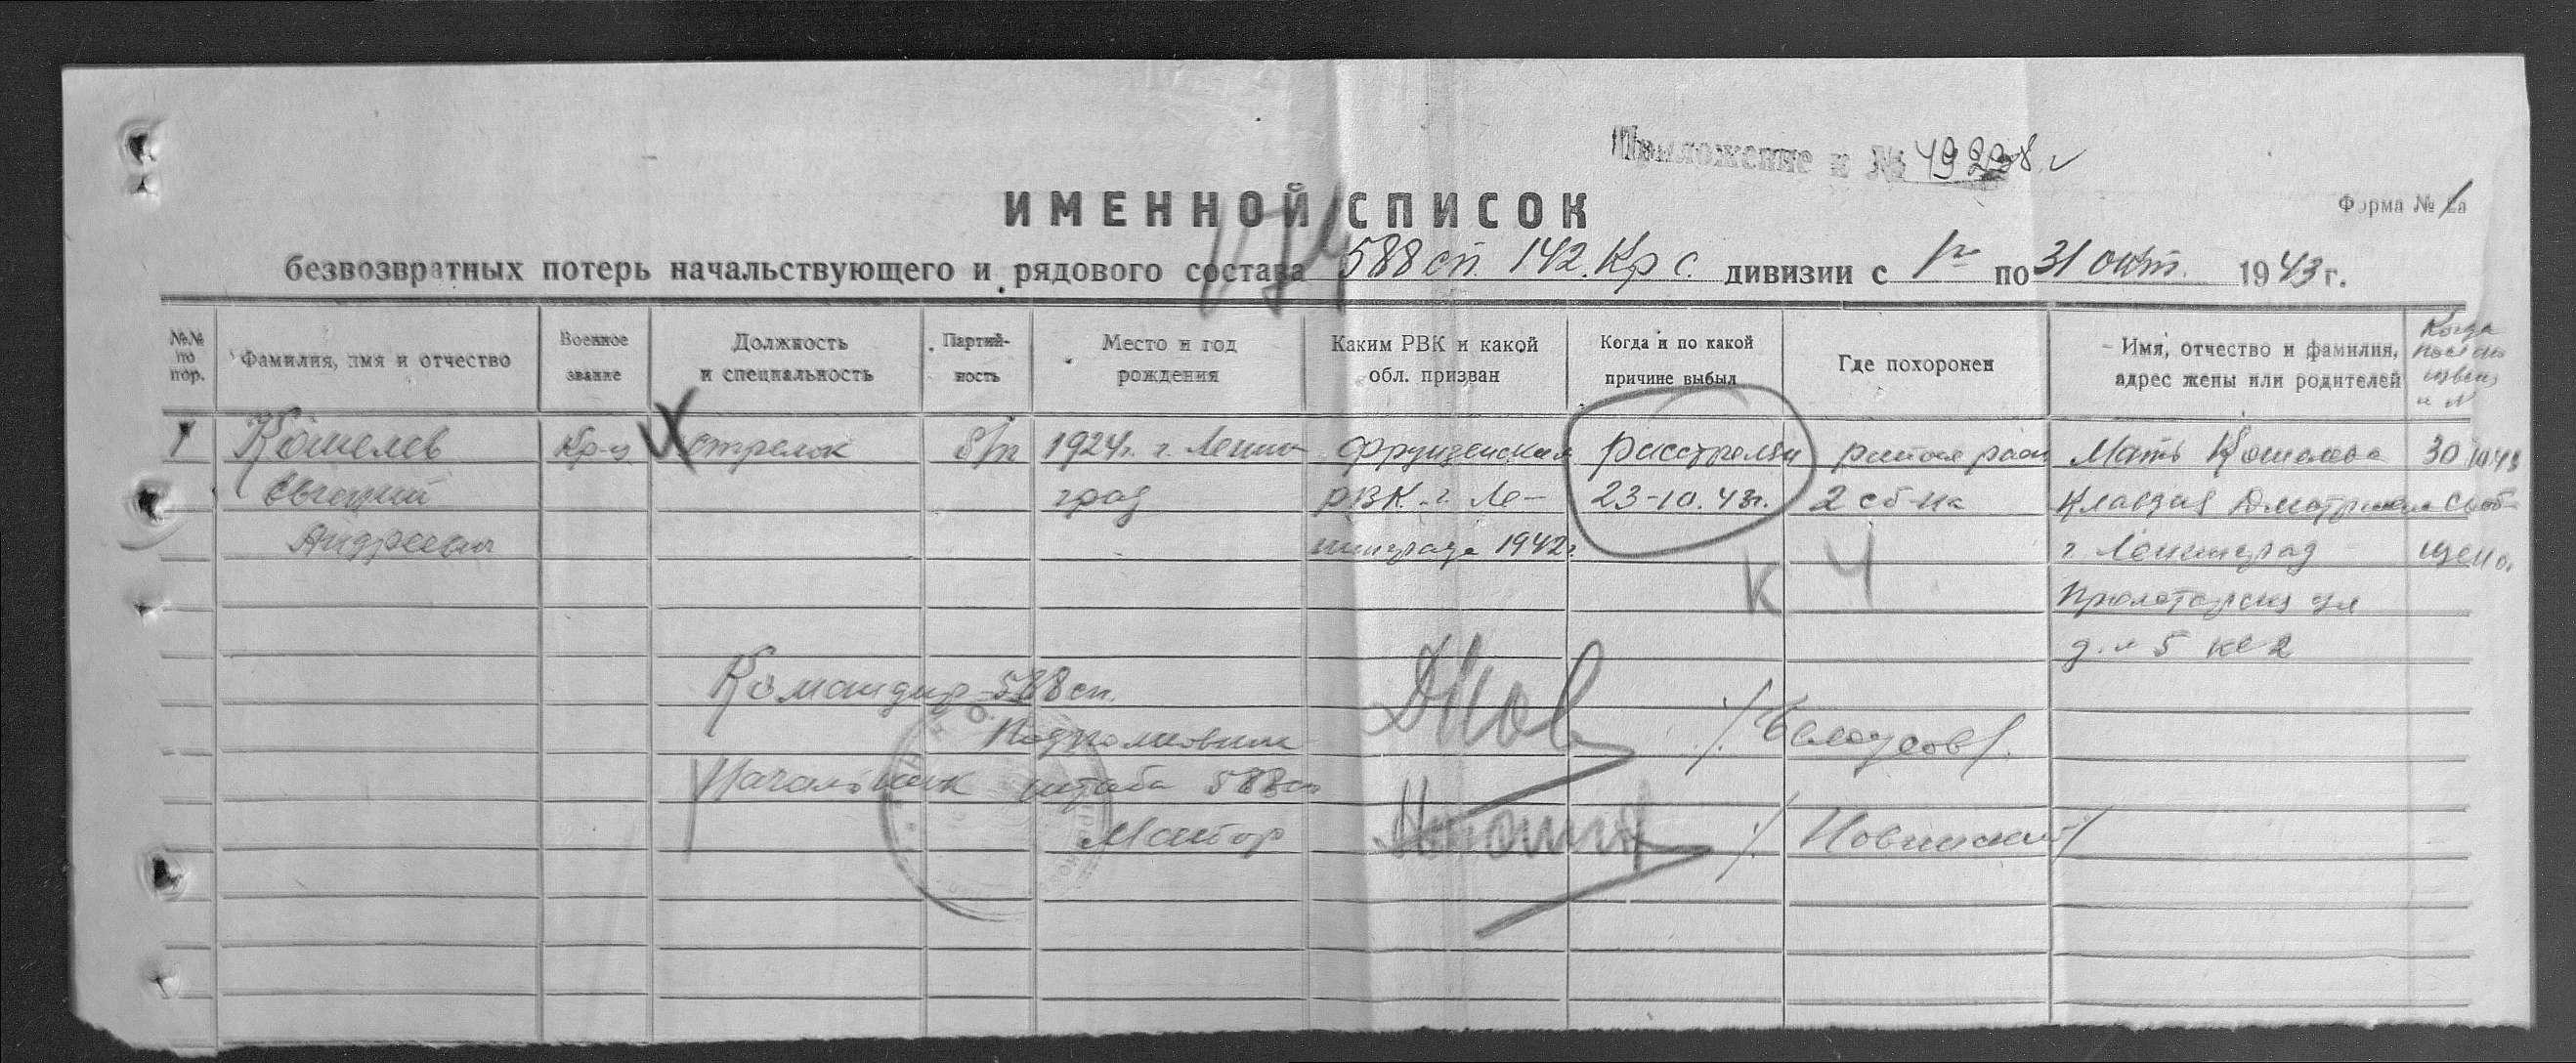 Приложение к № 49208
ИМЕННОЙ СПИСОК
Форма №
безвозвратных потерь начальствующего и рядового состава 588 сп. 142. Кр с. дивизии с 1го по 31 окт. 1943 г.
№№ по пор.
Фамилия, имя и отчество
Военное звание
Должность и специальность
Партийность
Место и год рождения
Каким РВК и какой обл. призван
Когда и по какой причине выбыл
Где похоронен
Имя, отчество и фамилия, адрес жены или родителей
Когда
1 Кошелев Кр-ц стрелок б/п 1924 г. г. Ленин- Фрунзенским расстрелян Мать Кошелева 30
Евгений град РВК. г. Ле- 23-10.43г. 2 сб-на Клавдия Дмитриевна сооб-
Андреевич нинграда 1942г. г Ленинград щено.
К Ч
Пролетарская ул
д. 5 кв 2
Командир 588 сп.
Подполковник /Белоусов/.
Начальник штаба 588 сп
Майор /Новинский/